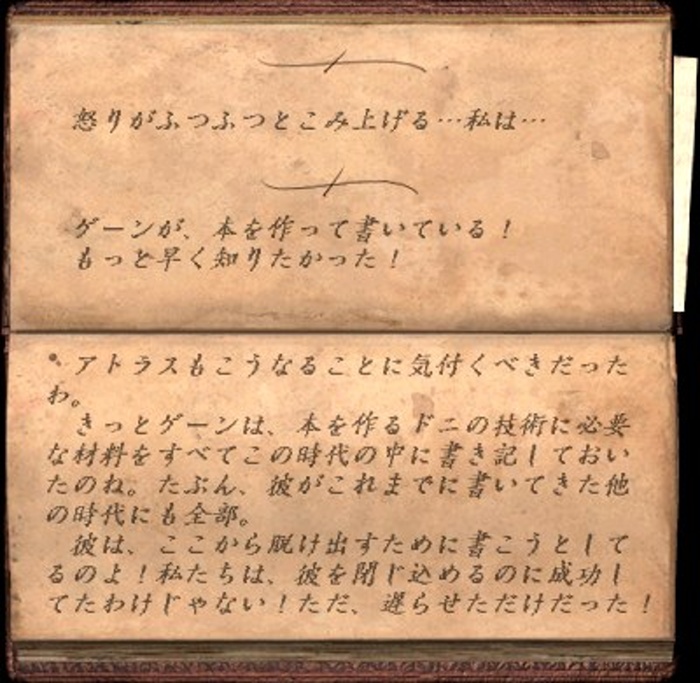 怒りがふつふつとこみ上げる…私は…
ゲーンが、本を作って書いている！
もっと早く知りたかった！
アトラスもこうなることに気付くべきだった
わ。
きっとゲーンは、本を作るドニの技術に必要
な材料をすべてこの時代の中に書き記しておい
たのね。たぶん、彼がこれまでに書いてきた他
の時代にも全部。
彼は、ここから脱け出すために書こうとして
るのよ！私たちは、彼を閉じ込めるのに成功し
てたわけじゃない！ただ、遅らせただけだった！